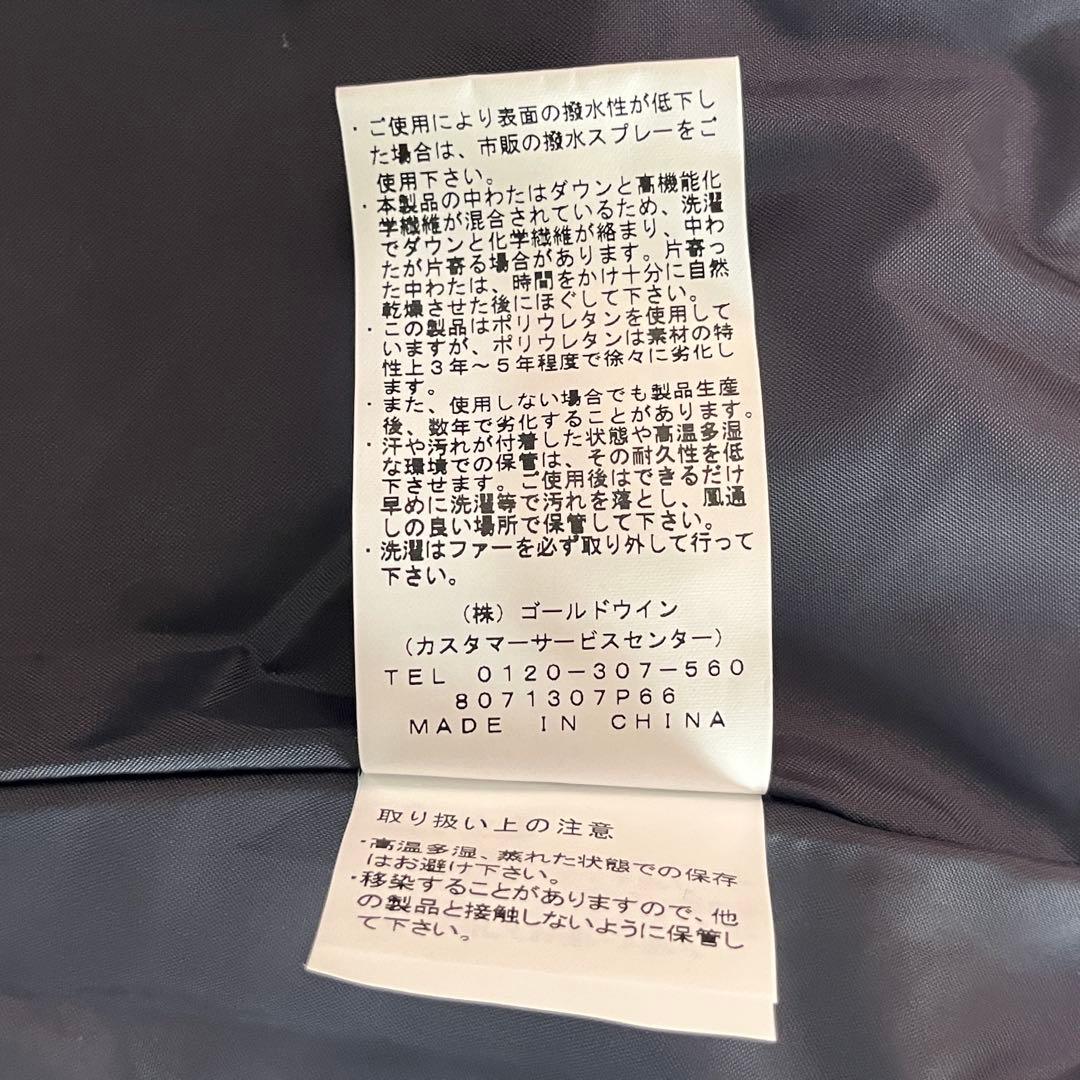 ・ご使用により表面の撥水性が低下し
た場合は、市販の撥水スプレーをご
使用下さい。
・本製品の中わたはダウンと高機能化
学繊維が混合されているため、洗濯
でダウンと化学繊維が絡まり、中わ
たが片寄る場合があります。片寄っ
た中わたは、時間をかけ十分に自然
乾燥させた後にほぐして下さい。
・この製品はポリウレタンを使用して
いますが、ポリウレタンは素材の特
性上３年～５年程度で徐々に劣化し
ます。
・また、使用しない場合でも製品生産
後、数年で劣化することがあります。
・汗や汚れが付着した状態や高温多湿
な環境での保管は、その耐久性を低
下させます。ご使用後はできるだけ
早めに洗濯等で汚れを落とし、風通
しの良い場所で保管して下さい。
・洗濯はファーを必ず取り外して行って
下さい。
（株）ゴールドウイン
（カスタマーサービスセンター）
ＴＥＬ　０１２０－３０７－５６０
８０７１３０７Ｐ６６
ＭＡＤＥ　ＩＮ　ＣＨＩＮＡ
取り扱い上の注意
・高温多湿、蒸れた状態での保存
はお避け下さい。
・移染することがありますので、他
の製品と接触しないように保管し
て下さい。